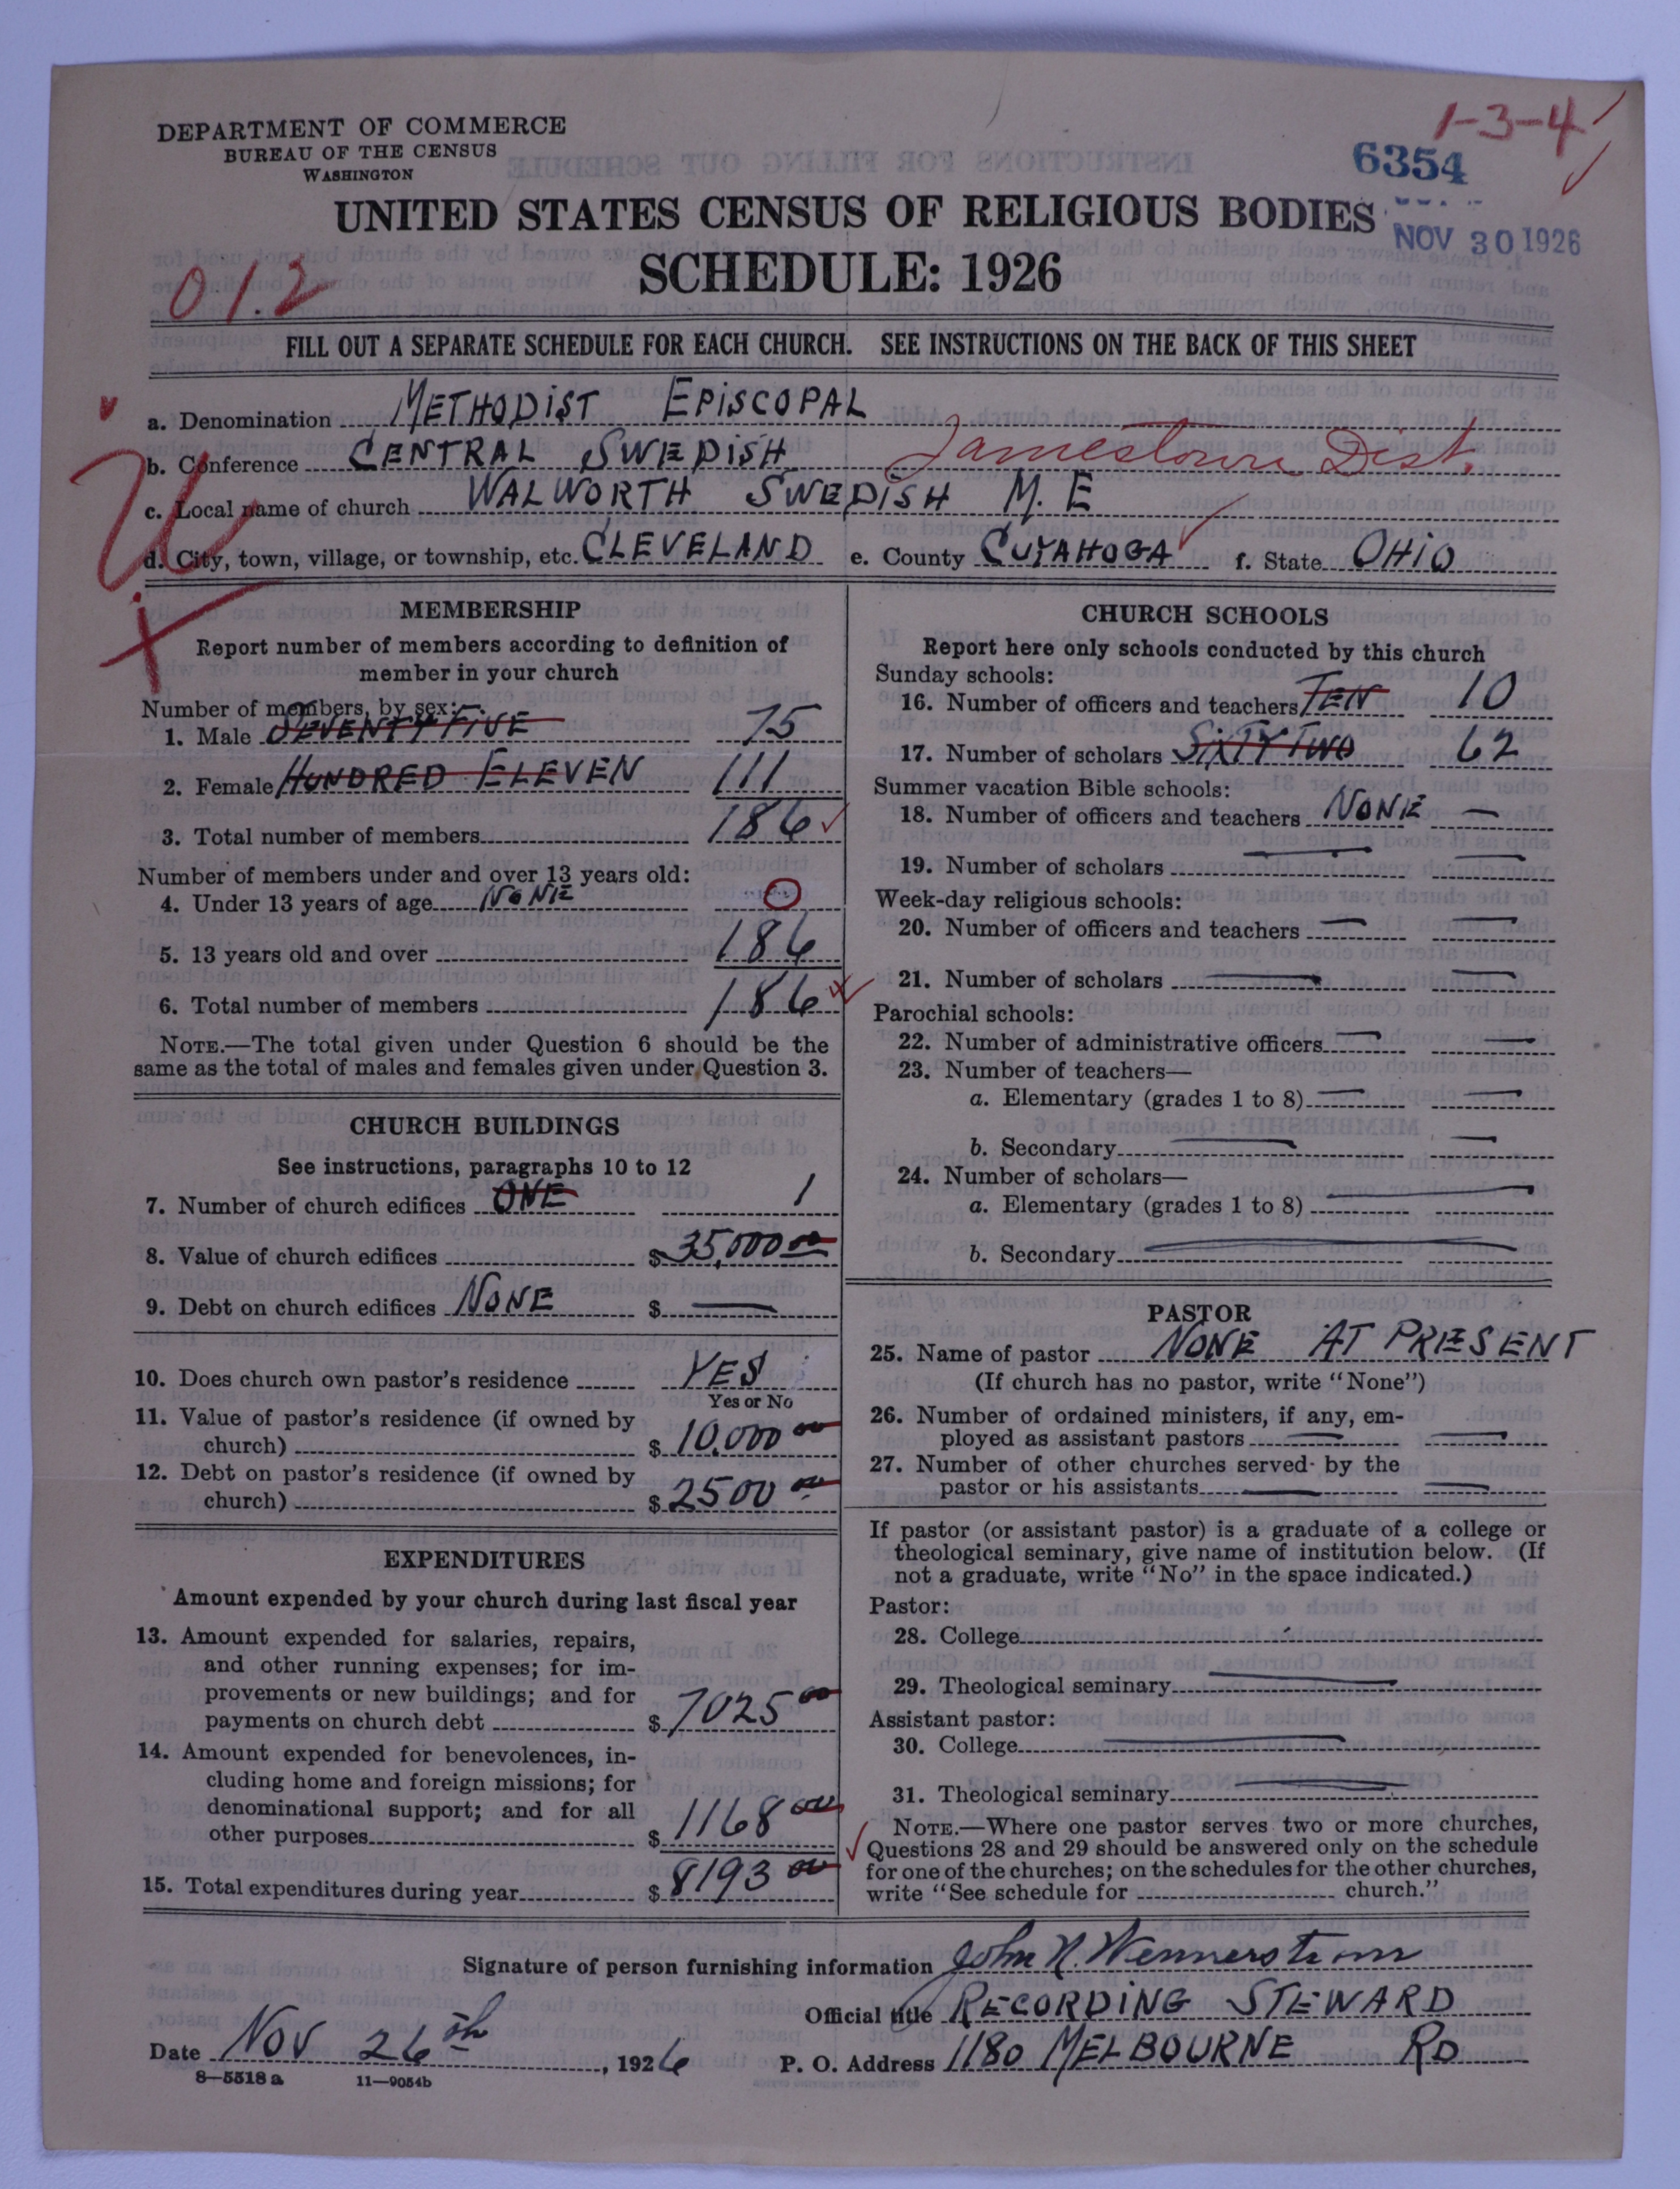 1-3-4
DEPARTMENT OF COMMERCE
BUREAU OF THE CENSUS
WASHINGTON
6354
UNITED STATES CENSUS OF RELIGIOUS BODIES
NOV 30 1926
SCHEDULE: 1926
01.2
FILL OUT A SEPARATE SCHEDULE FOR EACH CHURCH. SEE INSTRUCTIONS ON THE BACK OF THIS SHEET
a. Denomination METHODIST EPISCOPAL
b. Conference CENTRAL SWEDISH Jamestown Dist.
c. Local name of church WALWORTH SWEDISH M. E
d. City, town, village, or township, etc. CLEVELAND e. County CUYAHOGA f. State OHIO
MEMBERSHIP
Report number of members according to definition of
member in your church
Number of members, by sex:
1. Male SEVENTY FIVE 75
2. Female HUNDRED ELEVEN 111
3. Total number of members 186
Number of members under and over 13 years old:
4. Under 13 years of age NONE 0
5. 13 years old and over 186
6. Total number of members 186
NOTE.—The total given under Question 6 should be the
same as the total of males and females given under Question 3.
CHURCH BUILDINGS
See instructions, paragraphs 10 to 12
7. Number of church edifices ONE 1
8. Value of church edifices $ 35,000 00
9. Debt on church edifices NONE $ —
10. Does church own pastor's residence YES
Yes or No
11. Value of pastor's residence (if owned by
church) $ 10,000 00
12. Debt on pastor's residence (if owned by
church) $ 2500 00
EXPENDITURES
Amount expended by your church during last fiscal year
13. Amount expended for salaries, repairs,
and other running expenses; for im-
provements or new buildings; and for
payments on church debt $ 7025 00
14. Amount expended for benevolences, in-
cluding home and foreign missions; for
denominational support; and for all
other purposes $ 1168 00
15. Total expenditures during year $ 8193 00
CHURCH SCHOOLS
Report here only schools conducted by this church
Sunday schools:
16. Number of officers and teachers TEN 10
17. Number of scholars SIXTY TWO 62
Summer vacation Bible schools:
18. Number of officers and teachers NONE —
19. Number of scholars — —
Week-day religious schools:
20. Number of officers and teachers — —
21. Number of scholars — —
Parochial schools:
22. Number of administrative officers — —
23. Number of teachers—
a. Elementary (grades 1 to 8) — —
b. Secondary — —
24. Number of scholars—
a. Elementary (grades 1 to 8) —
b. Secondary —
PASTOR
25. Name of pastor NONE AT PRESENT
(If church has no pastor, write "None")
26. Number of ordained ministers, if any, em-
ployed as assistant pastors — —
27. Number of other churches served by the
pastor or his assistants — —
If pastor (or assistant pastor) is a graduate of a college or
theological seminary, give name of institution below. (If
not a graduate, write "No" in the space indicated.)
Pastor:
28. College
29. Theological seminary —
Assistant pastor:
30. College —
31. Theological seminary —
NOTE.—Where one pastor serves two or more churches,
Questions 28 and 29 should be answered only on the schedule
for one of the churches; on the schedules for the other churches,
write "See schedule for church."
Signature of person furnishing information John N. Wennerstrom
Official title RECORDING STEWARD
Date Nov 26th, 1926 P. O. Address 1180 MELBOURNE RD
8—5518 a 11—9054b